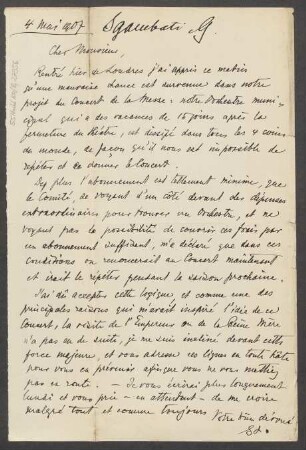 4 Mai 1907 Sgambati G.
Cher Monsieur,
Rentré hier de Londres j'ai appris ce matin
qu'une mauvaise chance est survenue dans notre
projet du Concert de la Messe: notre Orchestre muni-
cipal qui a des vacances de 15 jours après la
fermeture du théâtre, est dirigé dans tous les 4 coins
du monde, de façon qu'il nous est impossible de
répéter et de donner le Concert.
De plus l'abonnement est tellement minime, que
le Comité, se voyant d'un côté devant des dépenses
extraordinaires pour trouver un Orchestre, et ne
voyant pas la possibilité de couvrir ces frais par
un abonnement suffisant, m'a déclaré que dans ces
conditions on renoncerait au Concert maintenant
et irait le répéter pendant la saison prochaine.
J'ai dû accepter cette logique et comme une des
principales raisons qui m'avait inspiré l'idée de ce
Concert, la visite de l'Empereur ou de la Reine Mère
n'a pas eu de suite, je me suis incliné devant cette
force majeure, et vous adresse ces lignes en toute hâte
pour vous en prévenir afin que vous ne vous mettiez
pas en route. — Je vous écrirai plus longuement
lundi et vous prie — en attendant — de me croire
malgré tout et comme toujours
Votre bien dévoué